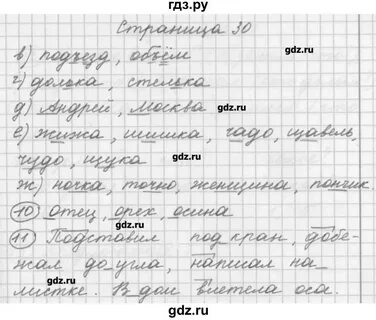 гдз.ру
Страница 30
gdz.ru
в) подъезд, объём
г) долька, стелька
gdz.ru
gdz.ru
д) Андрей, Москва
е) жижа, шишка, чадо, щавель,
gdz.ru
чудо, щука
gdz.ru
gdz.ru
ж) ночка, точно, женщина, пончик.
10 отец, орех, осина
gdz.ru
11 Подставил под кран, добе-
жал до угла, написал на
gdz.ru
листке. В дом влетела оса.
gdz.ru